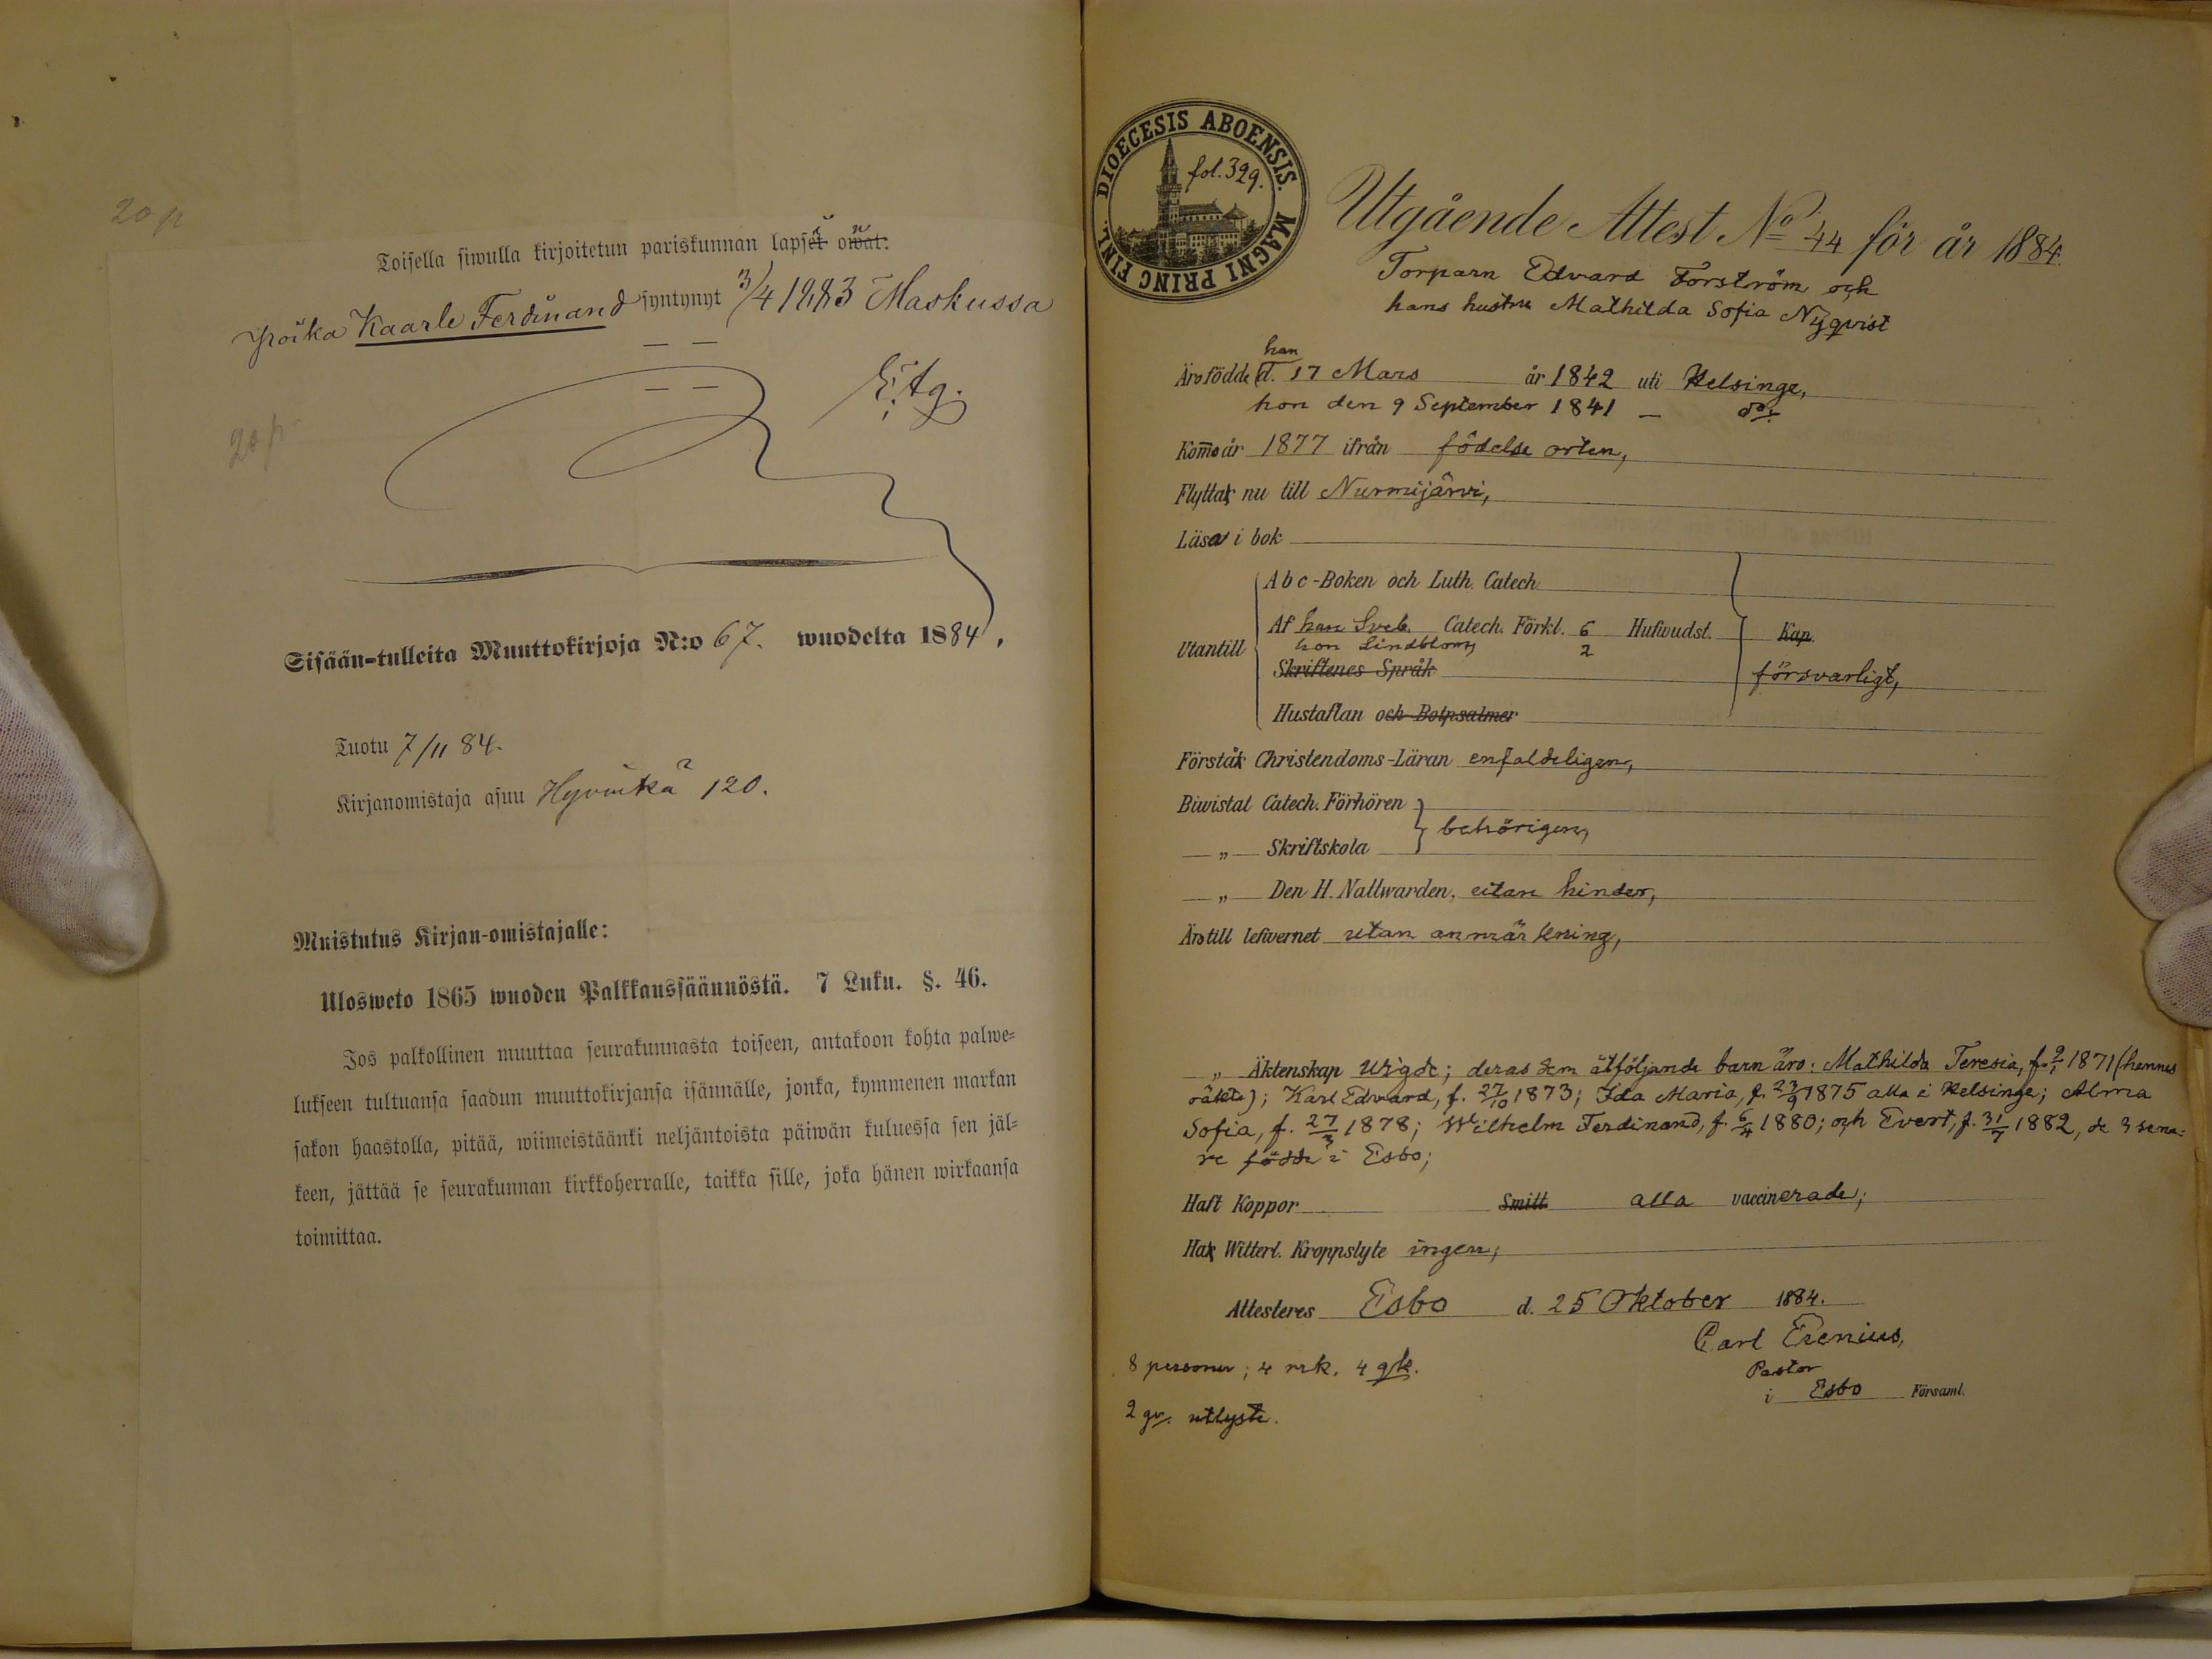 20 p
Toisella siwulla kirjoitetun pariskunnan lapset owat:
poika Kaarle Ferdinand syntynyt 3/4 1883 Maskussa
20 p
Sisään-tulleita Muuttokirjoja N:o 67. wuodelta 1884,
Tuotu 7/11 84.
Kirjanomistaja asuu Hyvinkä 120.
Muistutus Kirjan-omistajalle:
Ulosweto 1865 wuoden Palkkaussäännöstä. 7 Luku. §. 46.
Jos palkollinen muuttaa seurakunnasta toiseen, antakoon kohta palwe=
lukseen tultuansa saadun muuttokirjansa isännälle, jonka, kymmenen markan
sakon haastolla, pitää, wiimeistäänki neljäntoista päiwän kuluessa sen jäl=
keen, jättää se seurakunnan kirkkoherralle, taikka sille, joka hänen wirkaansa
toimittaa.
DIOECESIS ABOENSIS. MAGNI PRINC FINL.
fol. 329.
Utgående Attest No 44 för år 1884.
Torparn Edvard Forström och
hans hustru Mathilda Sofia Nyqvist
han
Äro födde d. 17 Mars år 1842 uti Helsinge,
hon den 9 September 1841 — do:
Kommo år 1877 ifrån födelse orten,
Flytta nu till Nurmijärvi,
Läsa i bok
Abc-Boken och Luth. Catech.
Utantill
Af han Sveb. Catech. Förkl. 6 Hufwudst. Kap.
hon Lindbloms 2
Skriftenes Språk
försvarligt,
Hustaflan och Botpsalmer
Förstå Christendoms-Läran enfaldeligen,
Biwistat Catech. Förhören
behörigen,
— „ — Skriftskola
— „ — Den H. Nattwarden, utan hinder,
Äro till lefwernet utan anmärkning,
— „ Äktenskap wigde; deras dem åtföljande barn äro: Mathilda Teresia, f. 9/1 1871 (hennes
oäkta); Karl Edvard, f. 27/10 1873; Ida Maria, f. 23/9 1875 alla i Helsinge; Alma
Sofia, f. 27/3 1878; Wilhelm Ferdinand, f. 6/4 1880; och Evert, f. 31/7 1882, de 3 sena=
re födde i Esbo;
Haft Koppor Smitt alla vaccinerade;
Ha Witterl. Kroppslyte ingen;
Attesteres Esbo d. 25 Oktober 1884.
Carl Erenius,
8 personer; 4 mrk. 4 gk.
Pastor
i Esbo Församl.
2 gr. utlyste.